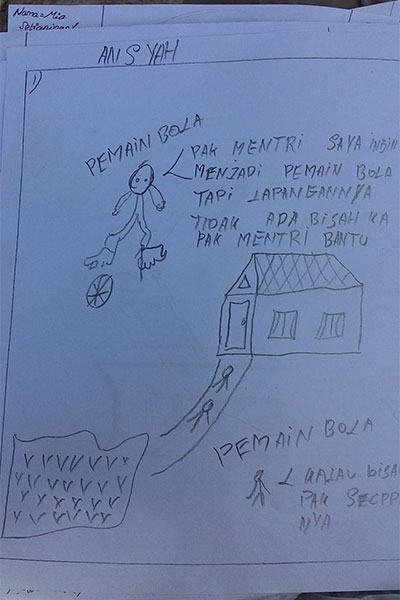 Nama = Mia
ANSYAH
1)
PEMAIN BOLA
PAK MENTRI SAYA INGIN
MENJADI PEMAIN BOLA
TAPI LAPANGANNYA
TIDAK ADA BISAH KA
PAK MENTRI BANTU
PEMAIN BOLA
KALAU BISA
PAK SECEPP
NYA